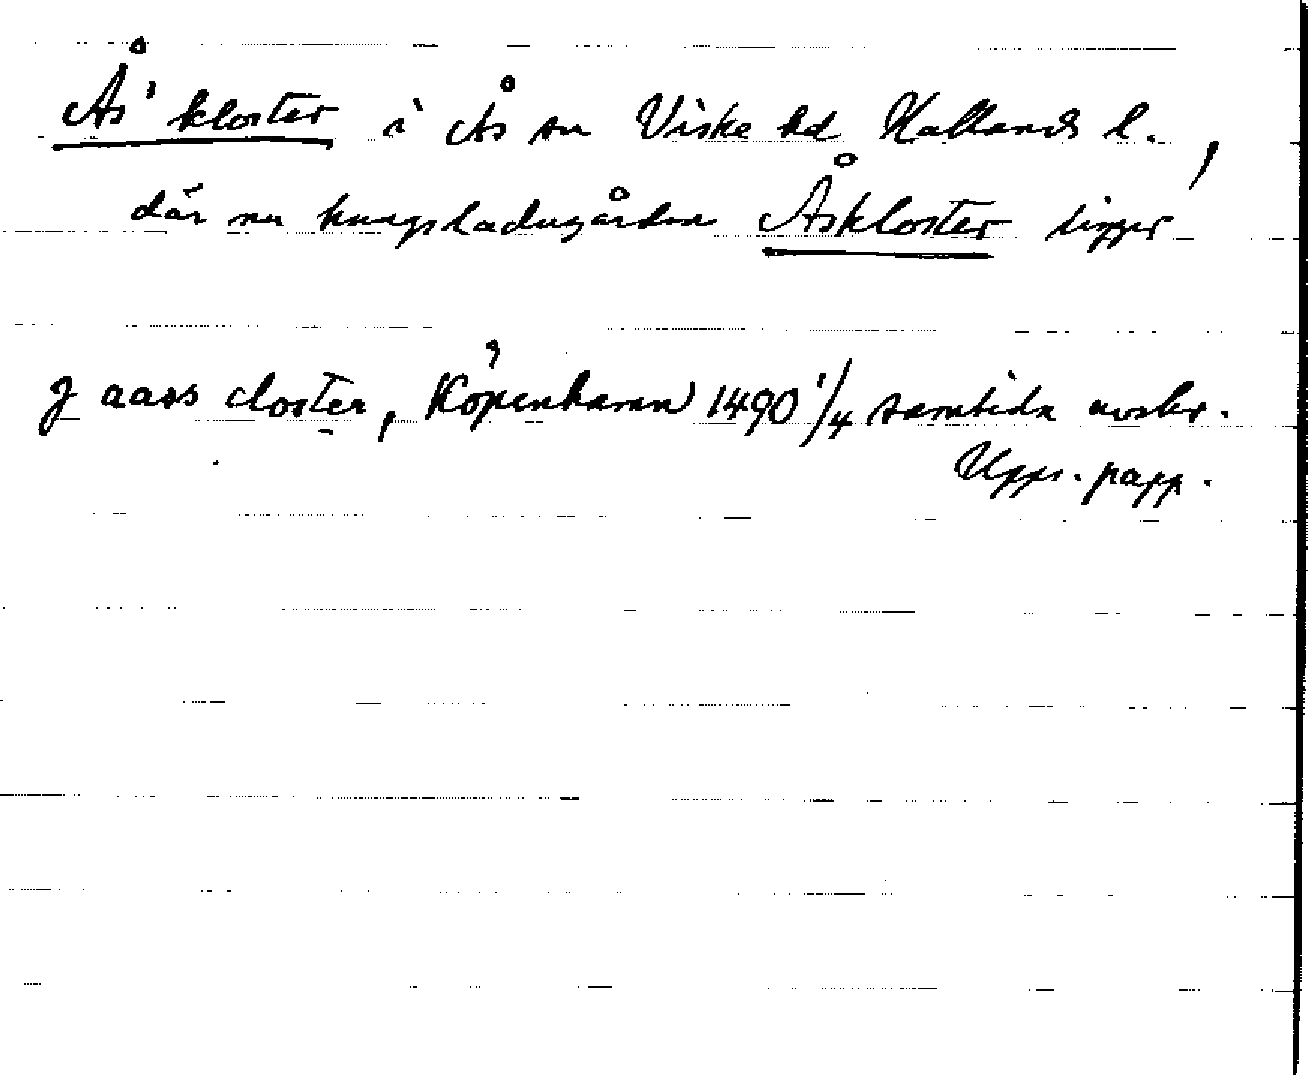 Ås' kloster i Ås sn Viske hd Hallands l.,
där nu kungsladugården Åskloster ligger
J aass closter, Köpenhamn 1490 1/4 samtida avskr.
Upps. papp.